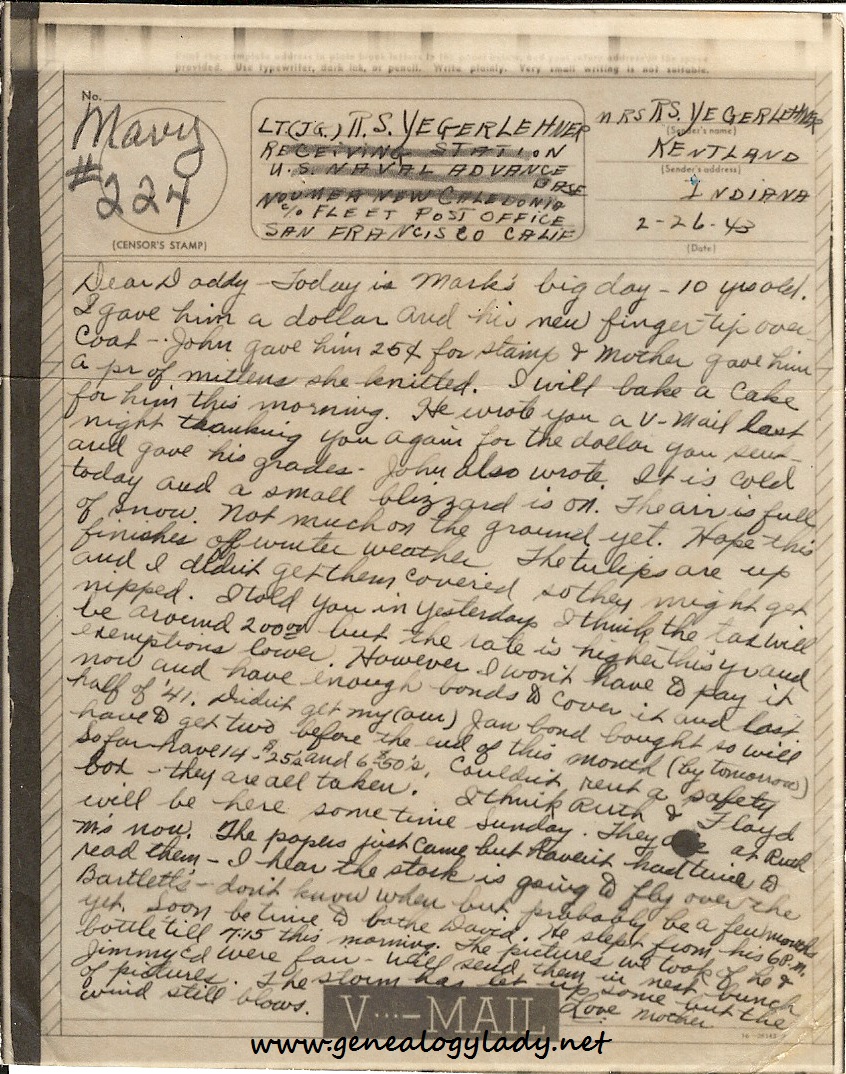 provided. Use typewriter, dark ink, or pencil. Write plainly. Very small writing is not suitable.
No.
Mavy
#
224
(CENSOR'S STAMP)
LT(JG.) R.S. YEGERLEHNER
RECEIVING STATION
U.S. NAVAL ADVANCE
BASE
NOUMEA NEW CALEDONIA
c/o FLEET POST OFFICE
SAN FRANCISCO CALIF
MRS R.S. YEGERLEHNER
(Sender's name)
KENTLAND
(Sender's address)
INDIANA
2-26-43
(Date)
Dear Daddy - Today is Mark's big day - 10 yrs old.
I gave him a dollar and his new finger-tip over-
coat -. John gave him 25¢ for stamp & Mother gave him
a pr of mittens she knitted. I will bake a cake
for him this morning. He wrote you a V-Mail last
night thanking you again for the dollar you sent -
and gave his grades - John also wrote. It is cold
today and a small blizzard is on. The air is full
of snow. Not much on the ground yet. Hope this
finishes off winter weather. The tulips are up
and I didn't get them covered so they might get
nipped. I told you in yesterdays I think the tax will
be around 200 00 but the rate is higher this yr and
exemptions lower. However I won't have to pay it
now and have enough bonds to cover it and last
half of '41. Didn't get my (our) Jan bond bought so will
have to get two before the end of this month (by tomorrow)
So far have 14 - $25's and 6 $50's. Couldn't rent a safety
box - they are all taken. I think Ruth & Floyd
will be here some time Sunday. They are at Ruth
M's now. The papers just came but haven't had time to
read them - I hear the stork is going to fly over the
Bartlett's - don't know when but probably be a few months
yet. Soon be time to bathe David. He slept from his 6 P.M.
bottle till 7:15 this morning. The pictures we took of he &
Jimmy d were fair - will send them in next bunch
of pictures. The storm has let up some but the
wind still blows.
Love Mother
V···-MAIL
www.genealogylady.net